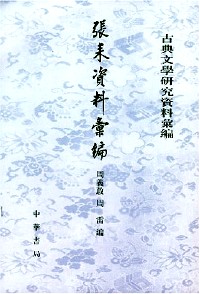 古典文學研究資料彙編
張耒資料彙編
周義敢 周雷 編
中華書局